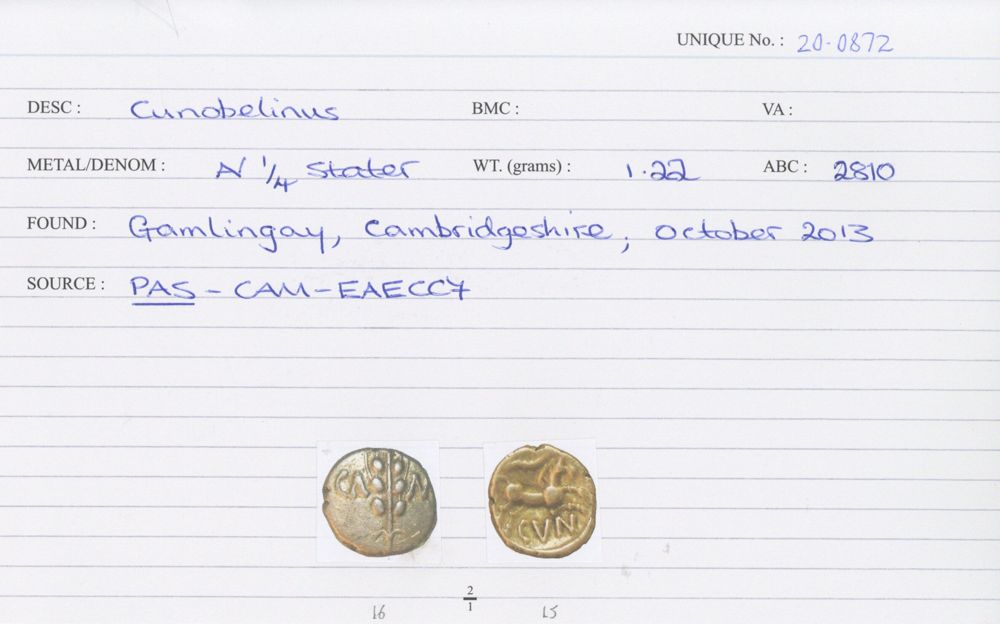 UNIQUE No. : 20-0872
DESC : Cunobelinus BMC : VA :
METAL/DENOM : N 1/4 Stater WT. (grams) : 1.22 ABC : 2810
FOUND : Gamlingay, Cambridgeshire, October 2013
SOURCE : PAS - CAM-EAECC7
CA M
CVN
2/1
16 15